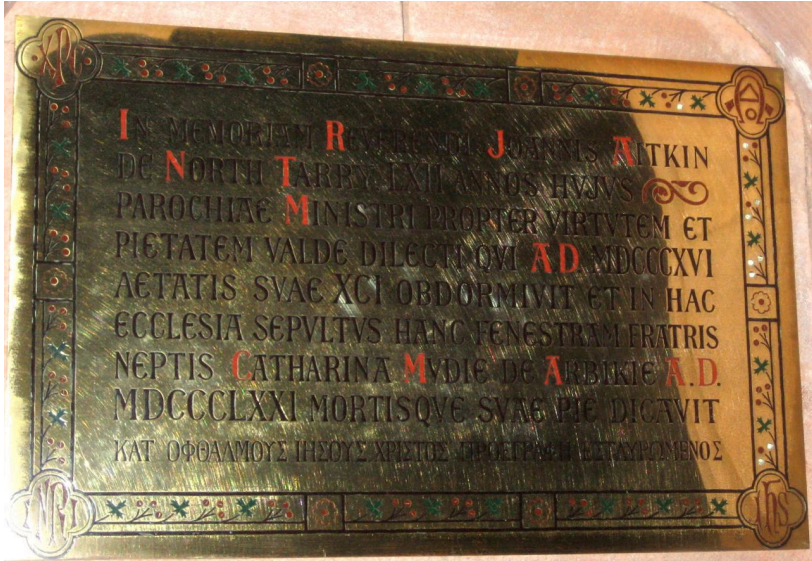 IN MEMORIAM REVERENDI JOANNIS AITKIN
DE NORTH TARRY LXII ANNOS HVJVS
PAROCHIAE MINISTRI PROPTER VIRTVTEM ET
PIETATEM VALDE DILECTI QVI AD MDCCCXVI
AETATIS SVAE XCI OBDORMIVIT ET IN HAC
ECCLESIA SEPVLTVS HANC FENESTRAM FRATRIS
NEPTIS CATHARINA MVDIE DE ARBIKIE A.D.
MDCCCLXXI MORTISQVE SVAE PIE DICAVIT
ΚΑΤ ΟΦΘΑΛΜΟΥΣ ΙΗΣΟΥΣ ΧΡΙΣΤΟΣ ΠΡΟΕΓΡΑΦΗ ΕΣΤΑΥΡΩΜΕΝΟΣ
INRI
ihs